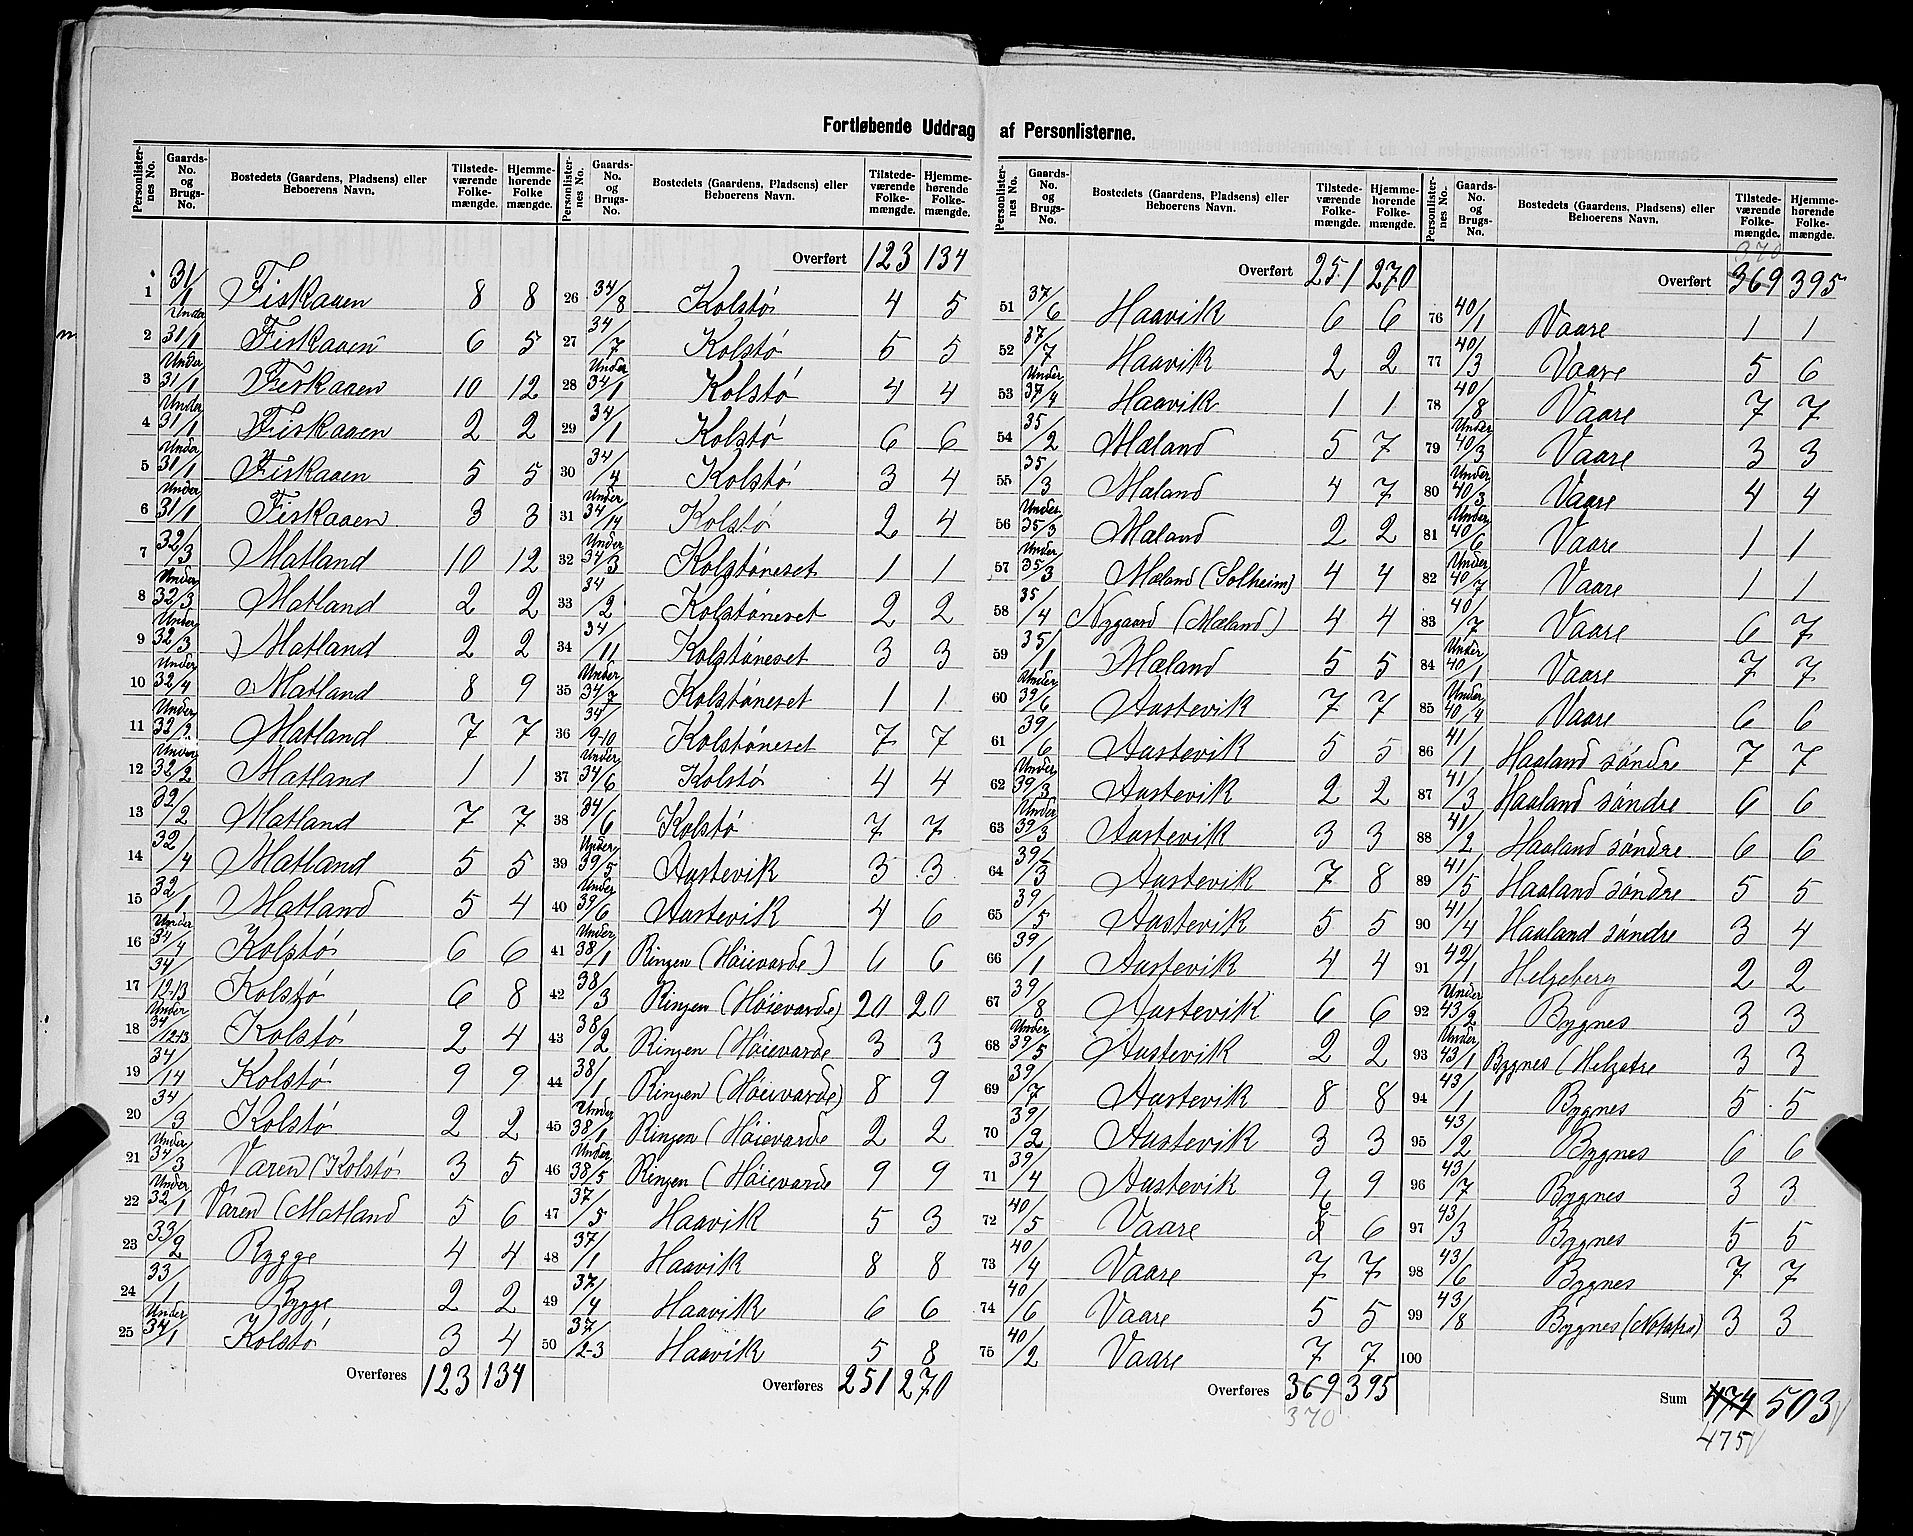 Fortløbende Uddrag af Personlisterne.
Personlisternes No. | Gaards-No. og Brugs-No. | Bostedets (Gaardens, Pladsens) eller Beboerens Navn. | Tilstedeværende Folkemængde. | Hjemmehørende Folkemængde.
1 31/1 Fiskaaen 8 8
2 Under 31/1 Fiskaaen 6 5
3 Under 31/1 Fiskaaen 10 12
4 Under 31/1 Fiskaaen 2 2
5 Under 31/1 Fiskaaen 5 5
6 Under 31/1 Fiskaaen 3 3
7 32/3 Matland 10 12
8 Under 32/3 Matland 2 2
9 Under 32/3 Matland 2 2
10 Under 32/4 Matland 8 9
11 Under 32/2 Matland 7 7
12 Under 32/2 Matland 1 1
13 32/2 Matland 7 7
14 32/4 Matland 5 5
15 32/1 Matland 5 4
16 Under 34/4 Kolstø 6 6
17 34/12-13 Kolstø 6 8
18 Under 34/12-13 Kolstø 2 4
19 34/14 Kolstø 9 9
20 34/3 Kolstø 2 2
21 Under 34/3 Varen (Kolstø 3 5
22 Under 32/1 Varen (Matland 5 6
23 33/2 Rygge 4 4
24 33/1 Rygge 2 2
25 Under 34/1 Kolstø 3 4
Overføres 123 134
Personlisternes No. | Gaards-No. og Brugs-No. | Bostedets (Gaardens, Pladsens) eller Beboerens Navn. | Tilstedeværende Folkemængde. | Hjemmehørende Folkemængde.
Overført 123 134
26 34/8 Kolstø 4 5
27 34/7 Kolstø 5 5
28 Under 34/1 Kolstø 4 4
29 34/1 Kolstø 6 6
30 34/4 Kolstø 3 4
31 Under 34/14 Kolstø 2 4
32 Under 34/3 Kolstøneset 1 1
33 34/2 Kolstøneset 2 2
34 34/11 Kolstøneset 3 3
35 Under 34/7 Kolstøneset 1 1
36 34/9-10 Kolstøneset 7 7
37 Under 34/6 Kolstø 4 4
38 34/6 Kolstø 7 7
39 Under 39/5 Aastevik 3 3
40 Under 39/6 Aastevik 4 6
41 Under 38/1 Ringen (Høievarde) 6 6
42 38/3 Ringen (Høievarde) 20 20
43 38/2 Ringen (Høievarde 3 3
44 38/1 Ringen (Høievarde) 8 9
45 Under 38/1 Ringen (Høievarde 2 2
46 Under 38/5 Ringen (Høievarde 9 9
47 37/5 Haavik 5 3
48 37/1 Haavik 8 8
49 37/4 Haavik 6 6
50 37/2-3 Haavik 5 8
Overføres 251 270
Personlisternes No. | Gaards-No. og Brugs-No. | Bostedets (Gaardens, Pladsens) eller Beboerens Navn. | Tilstedeværende Folkemængde. | Hjemmehørende Folkemængde.
Overført 251 270
51 37/6 Haavik 6 6
52 37/7 Haavik 2 2
53 Under 37/4 Haavik 1 1
54 35/2 Mæland 5 7
55 35/3 Mæland 4 7
56 Under 35/3 Mæland 2 2
57 Under 35/3 Mæland (Solheim) 4 4
58 35/4 Nygaard (Mæland) 4 4
59 35/1 Mæland 5 5
60 Under 39/6 Aastevik 7 7
61 39/6 Aastevik 5 5
62 Under 39/3 Aastevik 2 2
63 Under 39/3 Aastevik 3 3
64 39/3 Aastevik 7 8
65 39/5 Aastevik 5 5
66 39/1 Aastevik 4 4
67 39/8 Aastevik 6 6
68 Under 39/5 Aastevik 2 2
69 39/7 Aastevik 8 8
70 39/2 Aastevik 3 3
71 39/4 Aastevik 9 9
72 40/5 Vaare 5 6 6
73 40/4 Vaare 7 7
74 40/6 Vaare 5 5
75 40/2 Vaare 7 7
Overføres 369 395
370
Personlisternes No. | Gaards-No. og Brugs-No. | Bostedets (Gaardens, Pladsens) eller Beboerens Navn. | Tilstedeværende Folkemængde. | Hjemmehørende Folkemængde.
370
Overført 369 395
76 40/1 Vaare 1 1
77 40/3 Vaare 5 6
78 40/8 Vaare 7 7
79 Under 40/3 Vaare 3 3
80 Under 40/3 Vaare 4 4
81 Under 40/6 Vaare 1 1
82 Under 40/7 Vaare 1 1
83 40/7 Vaare 6 7
84 Under 40/1 Vaare 7 7
85 Under 40/4 Vaare 6 6
86 41/1 Haaland søndre 7 7
87 41/3 Haaland søndre 6 6
88 41/2 Haaland søndre 6 6
89 41/5 Haaland søndre 5 5
90 41/4 Haaland søndre 3 4
91 42/1 Helgeberg 2 2
92 Under 43/2 Bygnes 3 3
93 Under 43/1 Bygnes (Helgatre 3 3
94 43/1 Bygnes 5 5
95 43/2 Bygnes 6 6
96 43/7 Bygnes 3 3
97 43/3 Bygnes 5 5
98 43/6 Bygnes 7 7
99 43/8 Bygnes 3 3
100
Sum 474 503
475